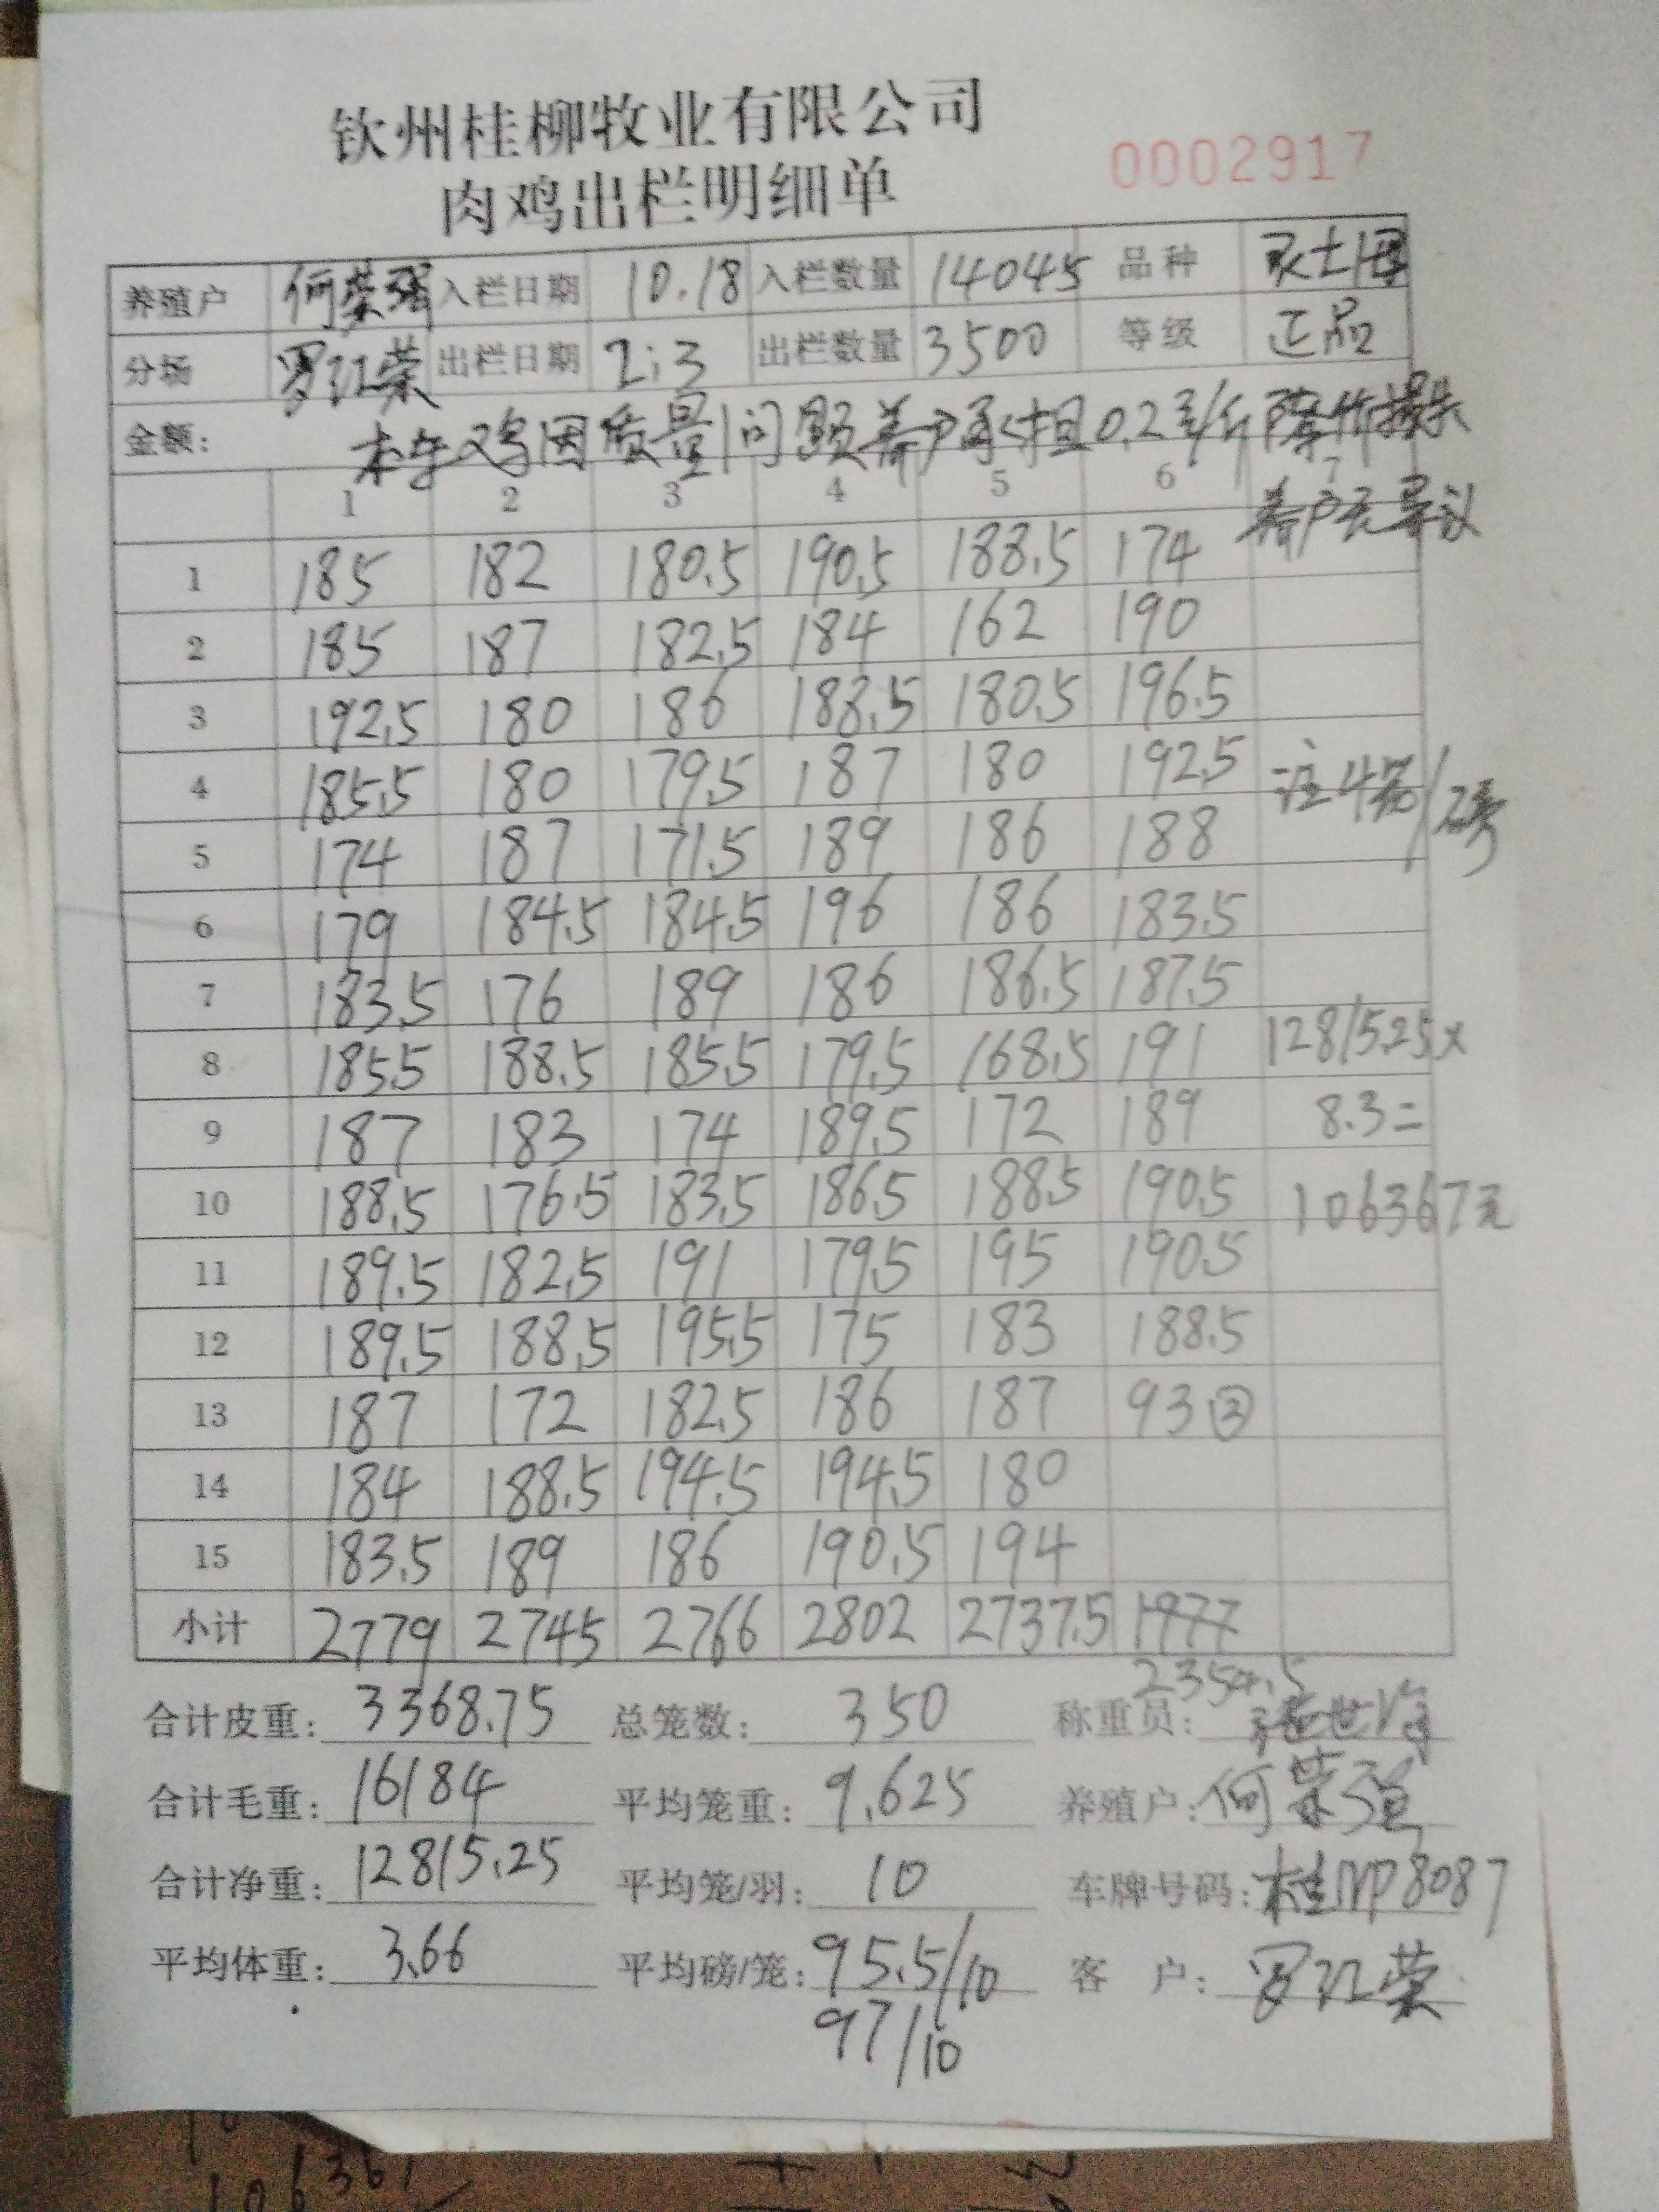 钦州桂柳牧业有限公司
肉鸡出栏明细单
0002917
养殖户 何荣强 入栏日期 10.18 入栏数量 14045 品种
分场 罗江荣 出栏日期 2:3 出栏数量 3500 等级 正品
金额: 本车鸡因质量问题养户承担0.2元/斤降价损失
养户无异议
1 2 3 4 5 6 7
1 185 182 180.5 190.5 188.5 174
2 185 187 182.5 184 162 190
3 192.5 180 186 188.5 180.5 196.5
4 185.5 180 179.5 187 180 192.5 注4笼/磅
5 174 187 171.5 189 186 188
6 179 184.5 184.5 196 186 183.5
7 183.5 176 189 186 186.5 187.5
8 185.5 188.5 185.5 179.5 168.5 191 12815.25×
9 187 183 174 189.5 172 189 8.3=
10 188.5 176.5 183.5 186.5 188.5 190.5 106367元
11 189.5 182.5 191 179.5 195 190.5
12 189.5 188.5 195.5 175 183 188.5
13 187 172 182.5 186 187 93②
14 184 188.5 194.5 194.5 180
15 183.5 189 186 190.5 194
小计 2779 2745 2766 2802 2737.5 1977
2354.5
合计皮重: 3368.75 总笼数: 350 称重员:
合计毛重: 16184 平均笼重: 9.625 养殖户: 何荣强
合计净重: 12815.25 平均笼/羽: 10 车牌号码: 桂NP8087
平均体重: 3.66 平均磅/笼: 95.5/10 客 户: 罗江荣
97/10